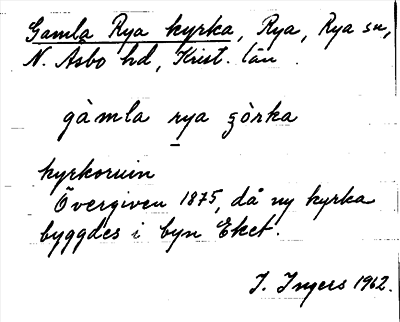 Gamla Rya kyrka, Rya, Rya sn,
N. Åsbo hd, Krist. län.
gàmla rya ʒòrka
kyrkoruin
Övergiven 1875, då ny kyrka
byggdes i byn Eket.
I. Ingers 1962.